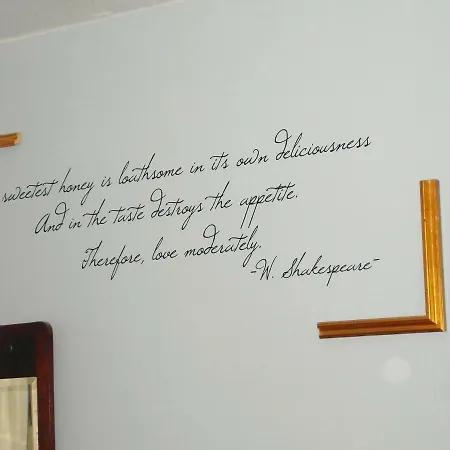 sweetest honey is loathsome in its own deliciousness
And in the taste destroys the appetite.
Therefore, love moderately.
-W. Shakespeare-